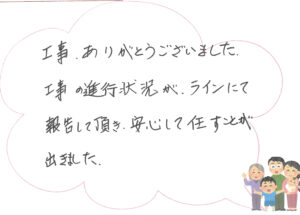 工事、ありがとうございました。
工事の進行状況が、ラインにて
報告して頂き、安心して任すことが
出きました。